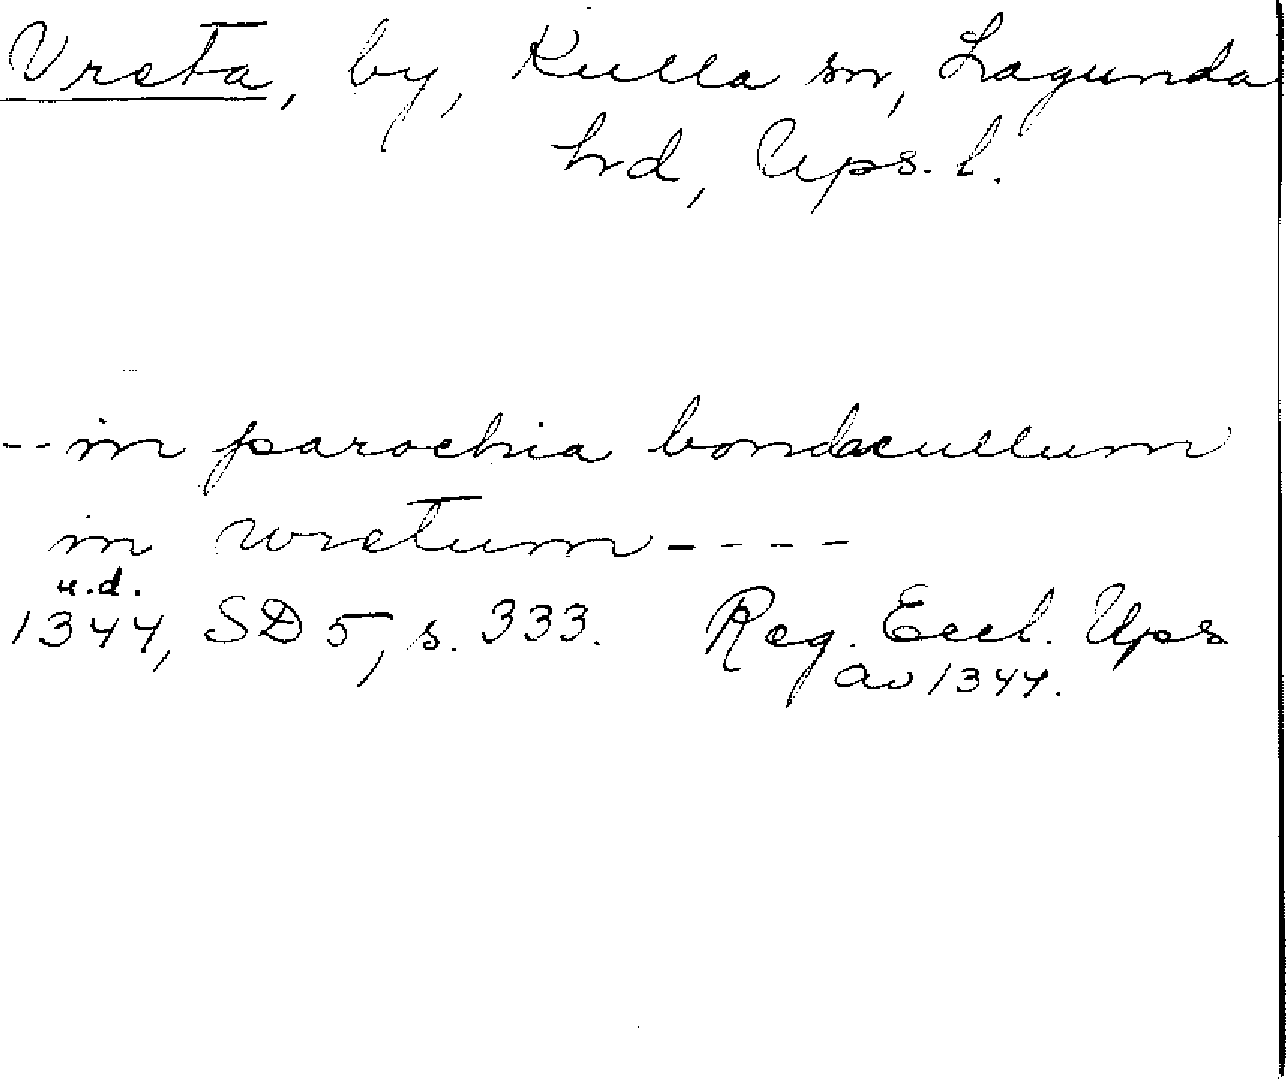 Vreta, by, Kulla sn, Lagunda
hd, Ups. l.
-- in parochia bondacullum
in wretum ----
u.d.
1344, SD 5, s. 333. Reg. Eccl. Ups
av 1344.